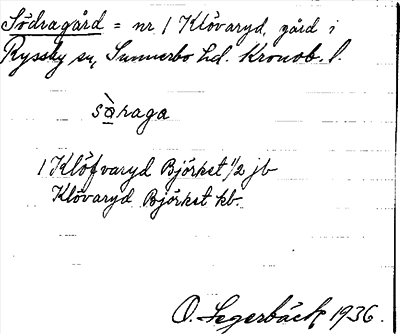 Södragård = nr 1 Klövaryd, gård i
Ryssby sn, Sunnerbo hd. Kronob. l.
sàraga
1 Klöfvaryd Björket 1/2 jb
Klövaryd Björket kb.
O. Segerbäck 1936.